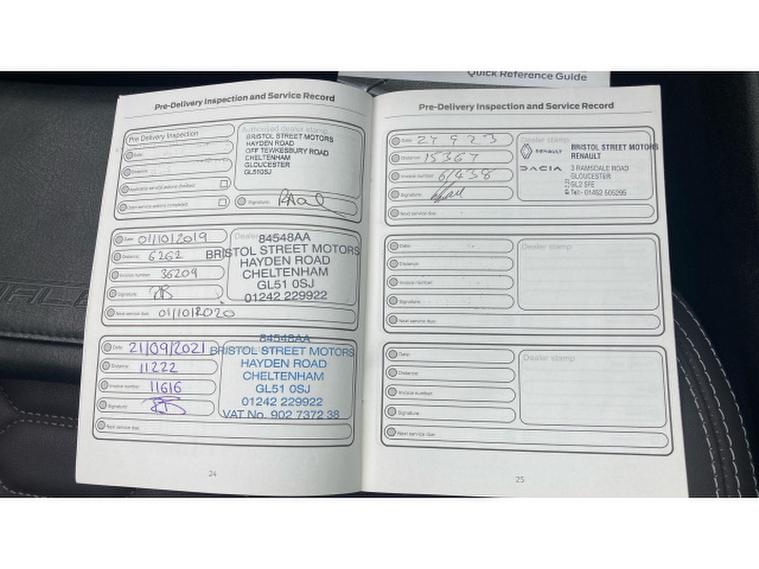 Quick Reference Guide
Pre-Delivery Inspection and Service Record
Pre Delivery Inspection
Date:
Distance:
Signature:
Authorised dealer stamp
BRISTOL STREET MOTORS
HAYDEN ROAD
OFF TEWKESBURY ROAD
CHELTENHAM
GLOUCESTER
GL510SJ
Date: 01/10/2019
Distance: 6262
Invoice number: 36209
Signature:
Next service due: 01/10/2020
84548AA
BRISTOL STREET MOTORS
HAYDEN ROAD
CHELTENHAM
GL51 0SJ
01242 229922
Date: 21/09/2021
Distance: 11222
Invoice number: 11616
Signature:
Next service due:
84548AA
BRISTOL STREET MOTORS
HAYDEN ROAD
CHELTENHAM
GL51 0SJ
01242 229922
VAT No. 902 7372 38
24
Pre-Delivery Inspection and Service Record
Date: 27 9 23
Distance: 15367
Invoice number: 61438
Signature:
Next service due:
Dealer stamp
RENAULT
DACIA
BRISTOL STREET MOTORS
RENAULT
3 RAMSDALE ROAD
GLOUCESTER
GL2 5FE
Tel:- 01452 505295
Date:
Distance:
Invoice number:
Signature:
Next service due:
Dealer stamp
Date:
Distance:
Invoice number:
Signature:
Next service due:
Dealer stamp
25